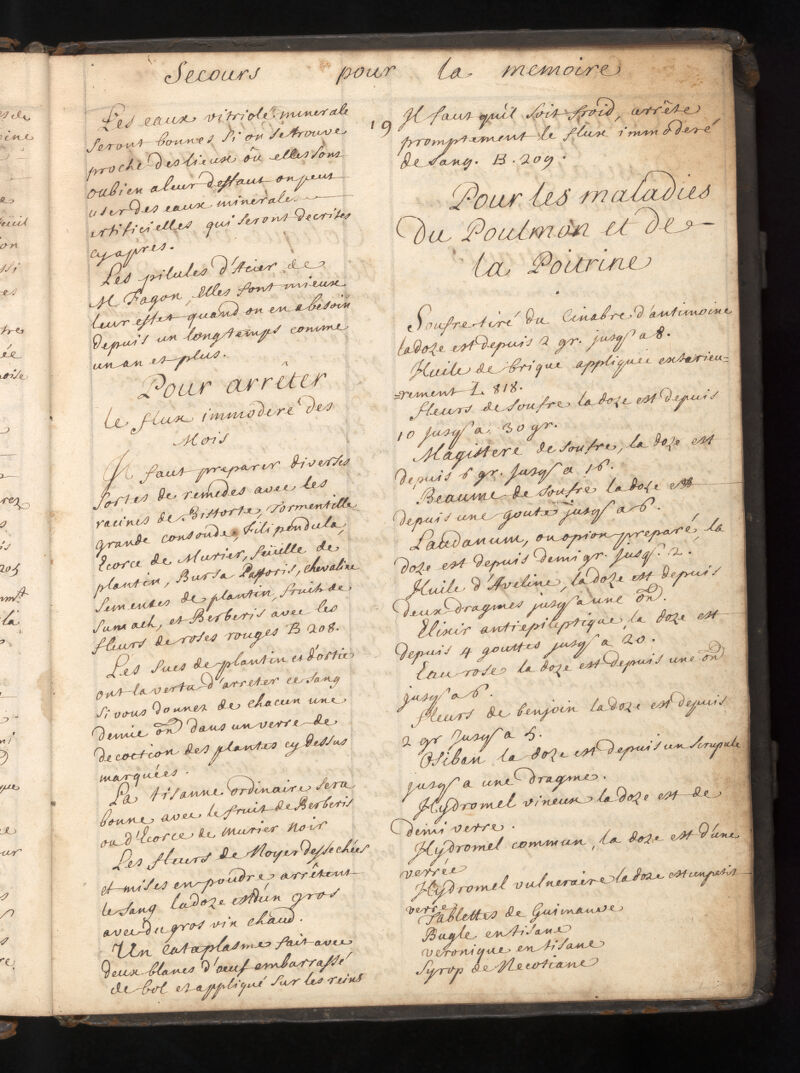 Secours pour la memoire
Les eaux vitriole minerale
seront bonnes si on se trouve
proche des lieux où elles sont
oubien a leur deffaut on peut
user des eaux minerales
artificielles qui seront decrites
cy apres.
Les pilules d'Acier de
M Fagon, Elles font mieux
leur effet quand on en a besoin
depuis un longtemps comme
un an et plus.
Pour arrêter
le flux immodéré des
Mois
Il faut preparer diverses
sortes de remedes avec les
racines de Bistorte, Tormentille
grande consoude, filipendula,
Ecorce de Murier, feüille de
plantin, Bursa Pastoris, chevaline
Semences de plantin, fruits de
Sumach, et Berberis avec les
fleurs de roses rouges B 208.
Les Sucs de plantin et d'ortie
ont la vertu d'arreter ce sang
si vous donnez de chacun une
demie on dans un verre de
decoction des plantes cy dessus
marquées.
La tisanne ordinaire sera
bonne avec le fruit de Berberis
ou d'Ecorce de murier noir
Les fleurs de Noyer dessechées
et mises en poudre arrêtent
le sang la doze est d'un gros
avec du gros vin chaud.
Un Cataplasme fait avec
deux blancs d'œuf embarrassé
de bol et appliqué sur les reins
19
Il faut qu'il soit froid, arrête
promptement le flux immoderé
de sang. B. 209.
Pour les maladies
Du Poulmon et de
la Poitrine
Soufre tiré du Cinabre d'antimoine
la doze est depuis 2 gr. jusqs a 8.
Huile de brique appliquée exterieu-
=rement L. 818.
fleurs de soufre la doze est depuis
10 jusqs a 30 gr.
Magistere de soufre, la doze est
depuis 6 gr. jusqs a 16.
Beaume de soufre la doze est
depuis une goute jusqs a 6.
Laudanum, ou opion preparé, la
doze est depuis demi gr. jusqs. 2.
Huile d'Aveline, la doze est depuis
deux dragmes jusqs a une on.
Elixir antiepileptique la doze est
depuis 4 gouttes jusqs a 20.
Eau rose la doze est depuis une on
jusqs a 6.
fleurs de benjoin la doze est depuis
2 gr jusqs a 5.
Osiban la doze est depuis un scrupule
jusqs a une dragme.
Hydromel vineux la doze est de
demi verre.
Hydromel commun, la doze est d'une
verree
Hydromel vulneraire la doze est un petit
verre
Tablettes de Guimauve
Bugle en tisane
veronique en tisane
Syrop de Necotiane